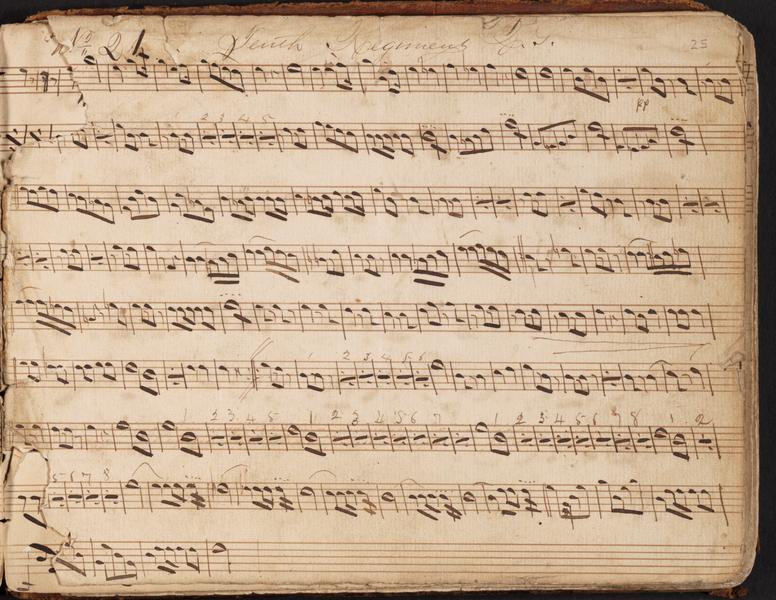 No 21 Tenth Regiment 25
pp
2 3 4 5
2 3 4 5 6
1 2 3 4 5 1 2 3 4 5 6 7 1 2 3 4 5 6 7 8 1 2
5 6 7 8